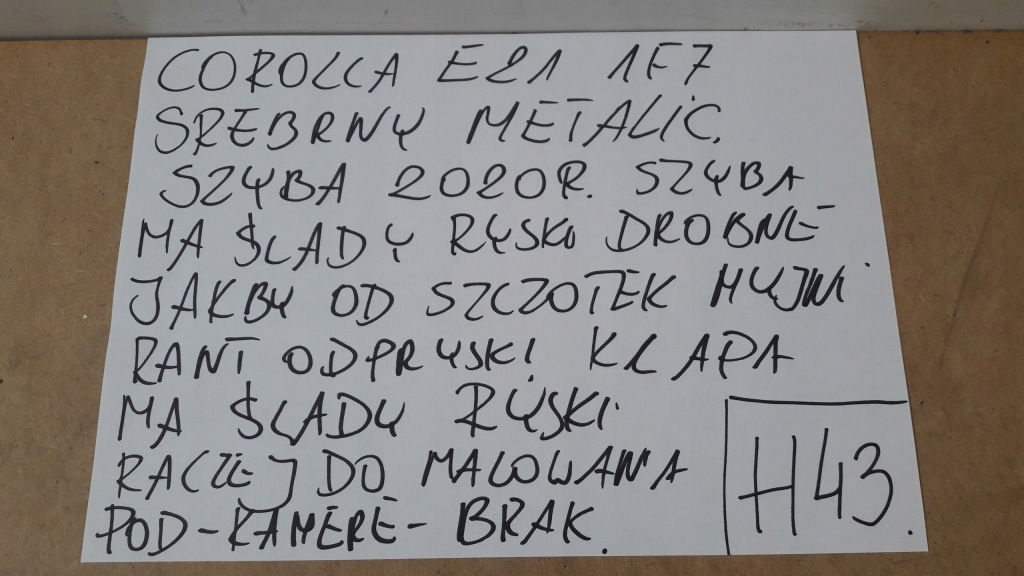 COROLLA E21 1F7
SREBRNY METALIC.
SZYBA 2020R. SZYBA
MA ŚLADY RYSKI DROBNE
JAKBY OD SZCZOTEK MYJNI
RANT ODPRYSKI KLAPA
MA ŚLADY RYSKI
RACZEJ DO MALOWANA
POD-KAMERE- BRAK.
H43.